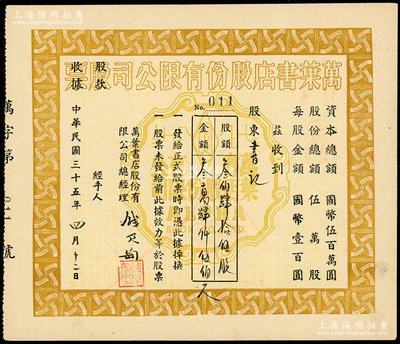 上海陽明拍賣
萬葉書店股份有限公司股票
股款收據
No. 011
資本總額 國幣伍百萬圓
股份總額 伍萬股
每股金額 國幣壹百圓
茲收到
股東書記
股額 叁伯肆拾伍股
金額 叁萬肆仟伍伯元
一 發給正式股票時即憑此據掉換
一 股票未發給前此據效力等於股票
萬葉書店股份有限公司總經理 錢君匋
經手人
中華民國三十五年四月十二日
萬字第 號
上海陽明拍賣